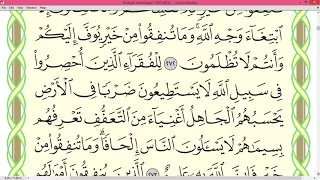 ابْتِغَآءَ وَجْهِ اللَّهِ وَمَا تُنفِقُوا مِنْ خَيْرٍ يُوَفَّ إِلَيْكُمْ
وَأَنتُمْ لَا تُظْلَمُونَ ٢٧٢ لِلْفُقَرَآءِ الَّذِينَ أُحْصِرُوا
فِي سَبِيلِ اللَّهِ لَا يَسْتَطِيعُونَ ضَرْبًا فِي الْأَرْضِ
يَحْسَبُهُمُ الْجَاهِلُ أَغْنِيَآءَ مِنَ التَّعَفُّفِ تَعْرِفُهُم
بِسِيمَاهُمْ لَا يَسْأَلُونَ النَّاسَ إِلْحَافًا وَمَا تُنفِقُوا مِنْ